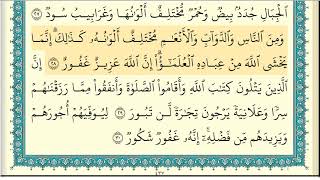 ٱلْجِبَالِ جُدَدٌۢ بِيضٌ وَحُمْرٌ مُّخْتَلِفٌ أَلْوَٰنُهَا وَغَرَابِيبُ سُودٌ ٢٧
وَمِنَ ٱلنَّاسِ وَٱلدَّوَآبِّ وَٱلْأَنْعَٰمِ مُخْتَلِفٌ أَلْوَٰنُهُۥ كَذَٰلِكَ إِنَّمَا
يَخْشَى ٱللَّهَ مِنْ عِبَادِهِ ٱلْعُلَمَٰٓؤُا۟ إِنَّ ٱللَّهَ عَزِيزٌ غَفُورٌ ٢٨
إِنَّ ٱلَّذِينَ يَتْلُونَ كِتَٰبَ ٱللَّهِ وَأَقَامُوا۟ ٱلصَّلَوٰةَ وَأَنفَقُوا۟ مِمَّا رَزَقْنَٰهُمْ
سِرًّا وَعَلَانِيَةً يَرْجُونَ تِجَٰرَةً لَّن تَبُورَ ٢٩ لِيُوَفِّيَهُمْ أُجُورَهُمْ
وَيَزِيدَهُم مِّن فَضْلِهِۦٓ إِنَّهُۥ غَفُورٌ شَكُورٌ ٣٠